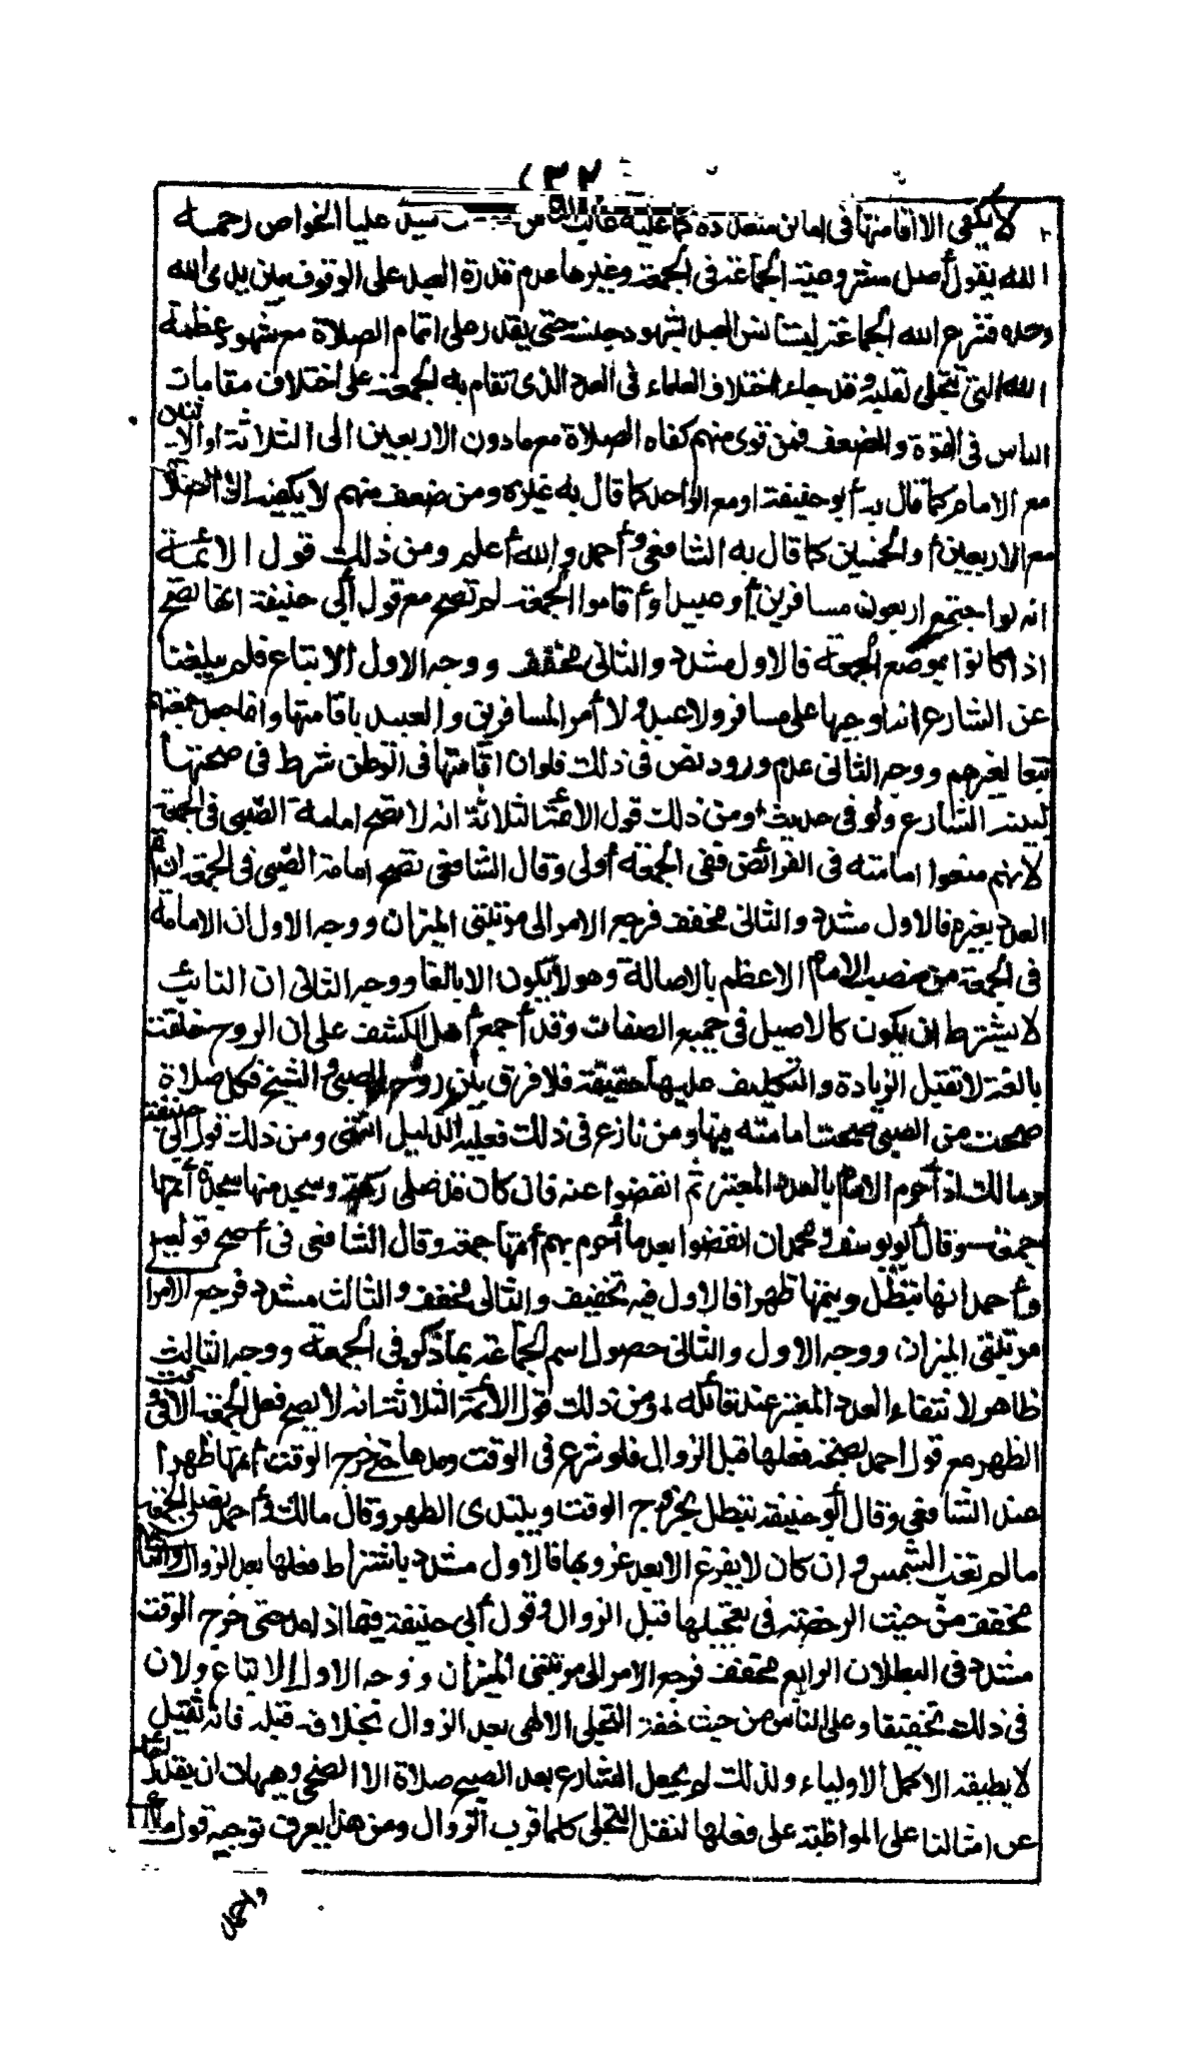 ٢٣٢
لا يكفي الا اقامتها في اماكن متعددة كما عليه غالب الناس سيدي عليا الخواص رحمه
الله يقول أصل مشروعية الجماعة في الجمعة وغيرها عدم قدرة العبد على الوقوف بين يدي الله
وحده فشرع الله الجماعة ليستأنس العبد بشهود جنسه حتى يقدر على اتمام الصلاة مع شهود عظمة
الله التي تتجلى لقلبه وقد جاء اختلاف العلماء في العدد الذي تقام به الجمعة على اختلاف مقامات
الناس في القوة والضعف فمن قوى منهم كفاه الصلاة مع مادون الاربعين الى الثلاثة او الاثنين
مع الامام كما قال به أبو حنيفة او مع الواحد كما قال به غيره ومن ضعف منهم لا يكفيه الا الصلاة
مع الاربعين أو الخمسين كما قال به الشافعي وأحمد والله أعلم ومن ذلك قول الائمة
انه لو اجتمع اربعون مسافرين أو عبيدا وأقاموا الجمعة لم تصح مع قول أبي حنيفة انها تصح
اذا كانوا بموضع الجمعة فالاول مشدد والثاني مخفف ووجه الاول الاتباع فلم يبلغنا
عن الشارع انه اوجبها على مسافر ولا عبد ولا أمر المسافرين والعبيد باقامتها وانما جعل جمعتهم
تبعا لغيرهم ووجه الثاني عدم ورود نص في ذلك فلو ان اقامتها في التوطن شرط في صحتها
لبينه الشارع ولو في حديث ومن ذلك قول الائمة الثلاثة انه لا تصح امامة الصبي في الجمعة
لانهم منعوا امامته في الفرائض ففي الجمعة أولى وقال الشافعي تصح امامة الصبي في الجمعة ان تم
العدد بغيره فالاول مشدد والثاني مخفف فرجع الامر الى مرتبتي الميزان ووجه الاول ان الامامة
في الجمعة من منصب الامام الاعظم بالاصالة وهو لا يكون الا بالغا ووجه الثاني ان النائب
لا يشترط ان يكون كالاصيل في جميع الصفات وقد أجمع أهل الكشف على ان الروح خلقت
بالغة لا تقبل الزيادة والتكليف عليها حقيقة فلا فرق بين روح الصبي والشيخ فكل صلاة
صحت من الصبي صحت امامته فيها ومن نازع في ذلك فعليه الدليل انتهى ومن ذلك قول أبي حنيفة
ومالك اذا أحرم الامام بالعدد المعتبر ثم انفضوا عنه فان كان قد صلى ركعة وسجد منها سجدة أتمها
جمعة وقال أبو يوسف ومحمد ان انفضوا بعد ما أحرم بهم أتمها جمعة وقال الشافعي في أصح قوليه
وأحمد انها تبطل ويتمها ظهرا فالاول فيه تخفيف والثاني مخفف والثالث مشدد فرجع الامر الى
مرتبتي الميزان ووجه الاول والثاني حصول اسم الجماعة بما ذكر في الجمعة ووجه الثالث
ظاهر لانتفاء العدد المعتبر عند قائله ومن ذلك قول الأئمة الثلاثة انه لا يصح فعل الجمعة الا في وقت
الظهر مع قول احمد بصحة فعلها قبل الزوال فلو شرع في الوقت ومدها حتى خرج الوقت أتمها ظهرا
عند الشافعي وقال أبو حنيفة تبطل بخروج الوقت ويبتدى الظهر وقال مالك وأحمد يصلي الجمعة
مالم تغب الشمس وان كان لا يفرغ الا بعد غروبها فالاول مشدد باشتراط فعلها بعد الزوال والثاني
مخفف من حيث الرخصة في تعجيلها قبل الزوال وقول أبي حنيفة فيما اذا مد حتى خرج الوقت
مشدد في البطلان الرابع مخفف فرجع الامر الى مرتبتي الميزان ووجه الاول الاتباع ولان
في ذلك تخفيفا وعلى الناس من حيث خفة التجلي الالهي بعد الزوال بخلاف قبله فانه ثقيل
لا يطيقه الا كمل الاولياء ولذلك لم يجعل الشارع بعد الصبح صلاة الا الضحى وهيهات ان يقدر
عن امثالنا على المواظبة على فعلها لثقل التجلي كلما قرب الزوال ومن هنا يعرف توجيه قول مالك
واحمد